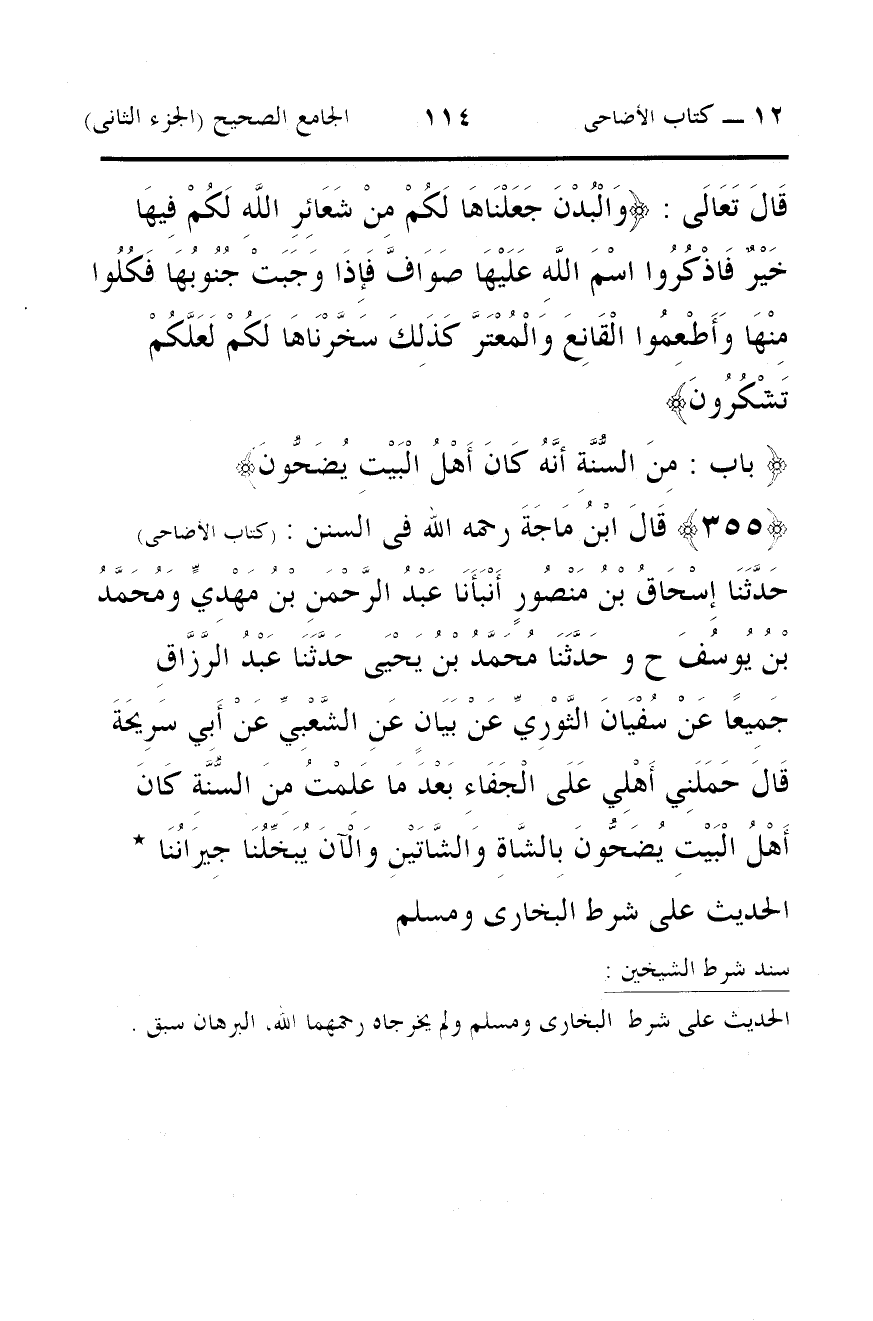 ١٢ ــ كتاب الأضاحى ١١٤ الجامع الصحيح (الجزء الثانى)
قَالَ تَعَالَى : ﴿وَالْبُدْنَ جَعَلْنَاهَا لَكُمْ مِنْ شَعَائِرِ اللَّهِ لَكُمْ فِيهَا
خَيْرٌ فَاذْكُرُوا اسْمَ اللَّهِ عَلَيْهَا صَوَافَّ فَإِذَا وَجَبَتْ جُنُوبُهَا فَكُلُوا
مِنْهَا وَأَطْعِمُوا الْقَانِعَ وَالْمُعْتَرَّ كَذَلِكَ سَخَّرْنَاهَا لَكُمْ لَعَلَّكُمْ
تَشْكُرُونَ﴾
﴿ باب : مِنَ السُّنَّةِ أنَّهُ كَانَ أَهْلُ الْبَيْتِ يُضَحُّونَ﴾
﴿٣٥٥﴾ قَالَ ابْنُ مَاجَةَ رحمه الله فى السنن : (كتاب الأضاحى)
حَدَّثَنَا إِسْحَاقُ بْنُ مَنْصُورٍ أَنْبَأَنَا عَبْدُ الرَّحْمَنِ بْنُ مَهْدِيٍّ وَمُحَمَّدُ
بْنُ يُوسُفَ ح و حَدَّثَنَا مُحَمَّدُ بْنُ يَحْيَى حَدَّثَنَا عَبْدُ الرَّزَّاقِ
جَمِيعًا عَنْ سُفْيَانَ الثَّوْرِيِّ عَنْ بَيَانٍ عَنِ الشَّعْبِيِّ عَنْ أَبِي سَرِيحَةَ
قَالَ حَمَلَنِي أَهْلِي عَلَى الْجَفَاءِ بَعْدَ مَا عَلِمْتُ مِنَ السُّنَّةِ كَانَ
أَهْلُ الْبَيْتِ يُضَحُّونَ بِالشَّاةِ وَالشَّاتَيْنِ وَالْآنَ يُبَخِّلُنَا جِيرَانُنَا *
الحديث على شرط البخارى ومسلم
سند شرط الشيخين :
الحديث على شرط البخارى ومسلم ولم يخرجاه رحمهما الله، البرهان سبق .